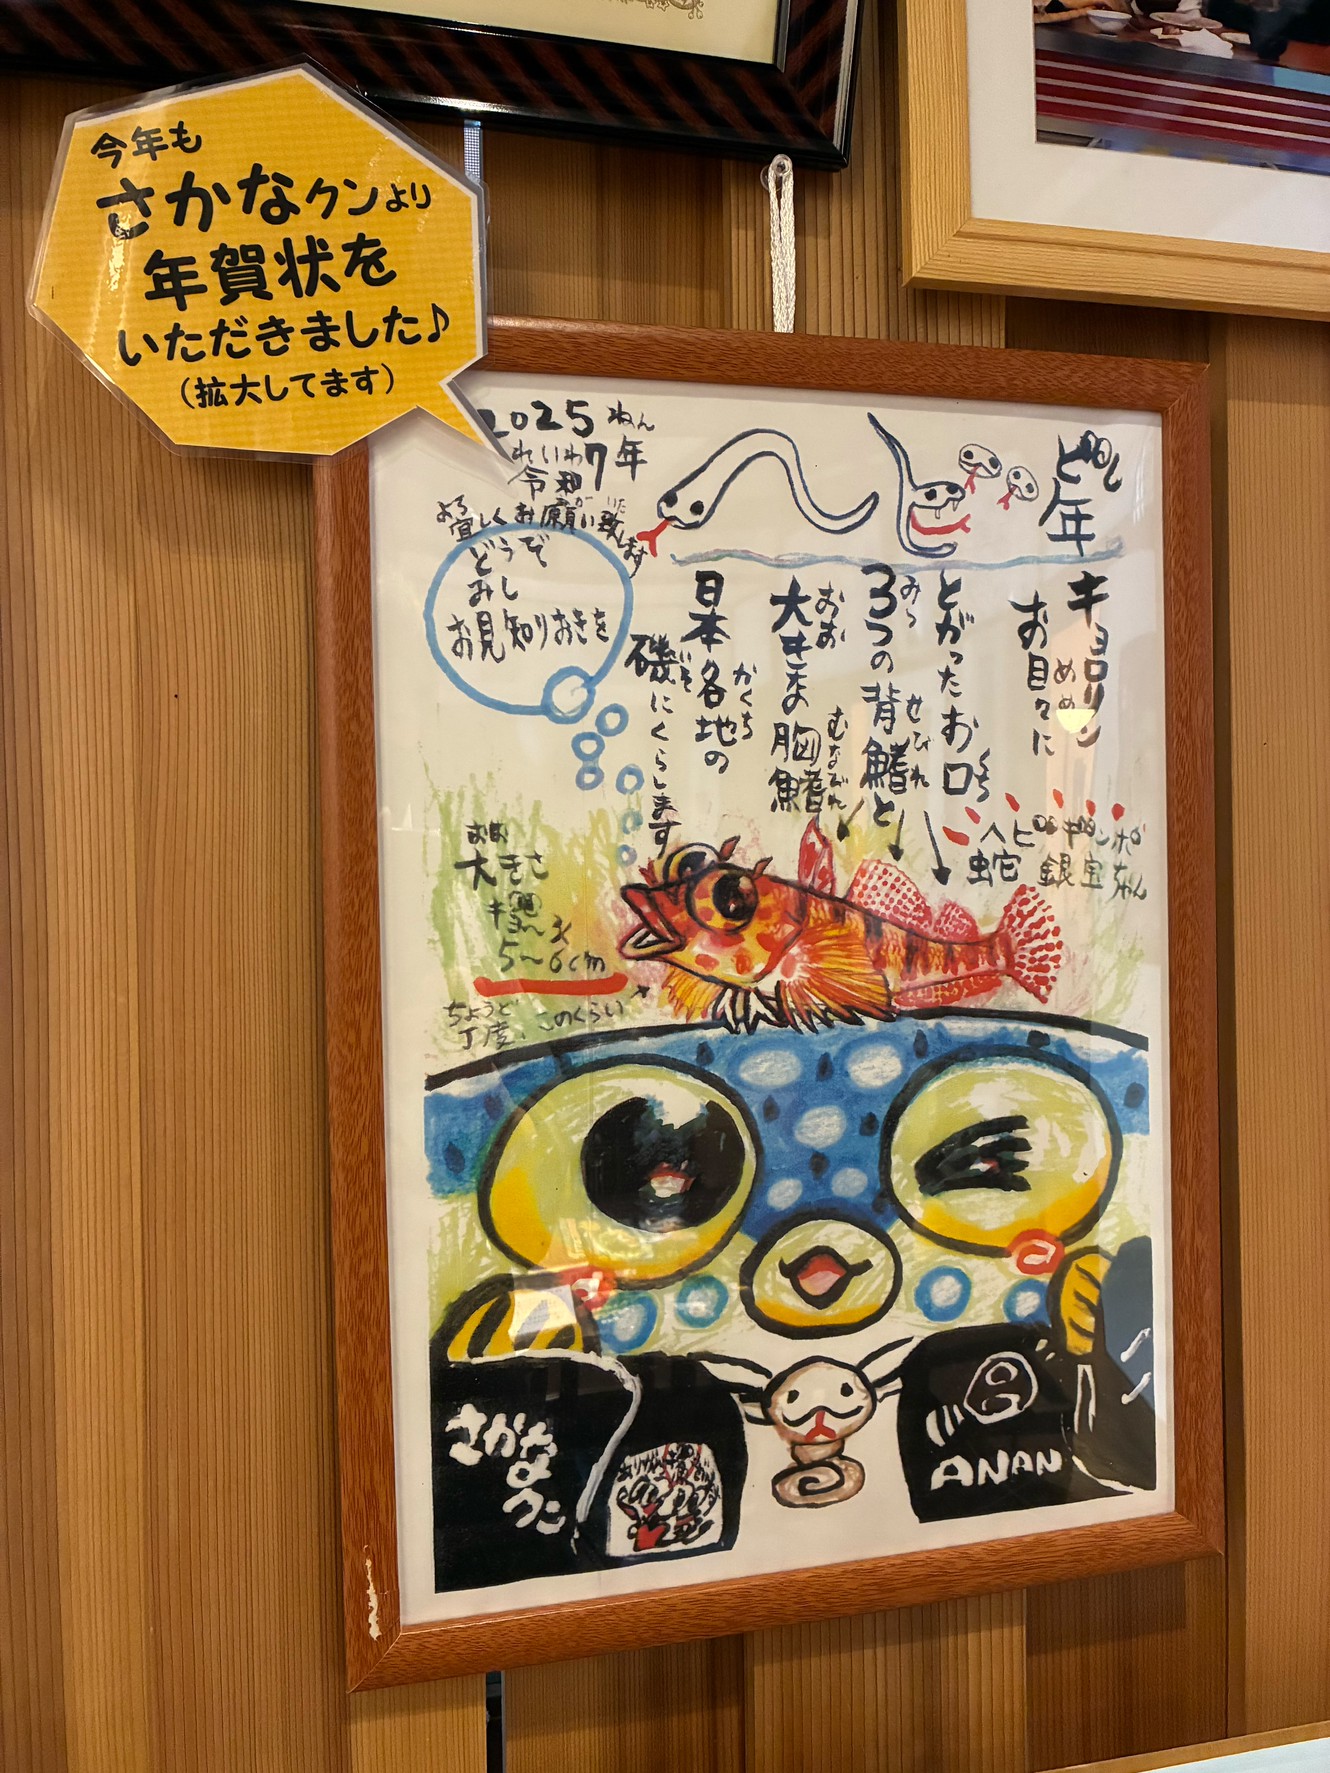 今年も
さかなクンより
年賀状を
いただきました♪
(拡大してます)
2025ねん
れいわ
令和7年
よろ ねが いた
宜しくお願い致します
ど年
キョロリン
お目々に
めめ
とがったお口
くち
3つの背鰭と
みっ せびれ
大きな胸鰭
おお むなびれ
日本各地の
かくち
磯にくらします
いそ
ヘビギンポ
蛇銀宝ちゃん
どうぞ
みし
お見知りおきを
おお
大きさ
5〜6cm
ちょうど
丁度、このくらい
さかなクン
ANAN